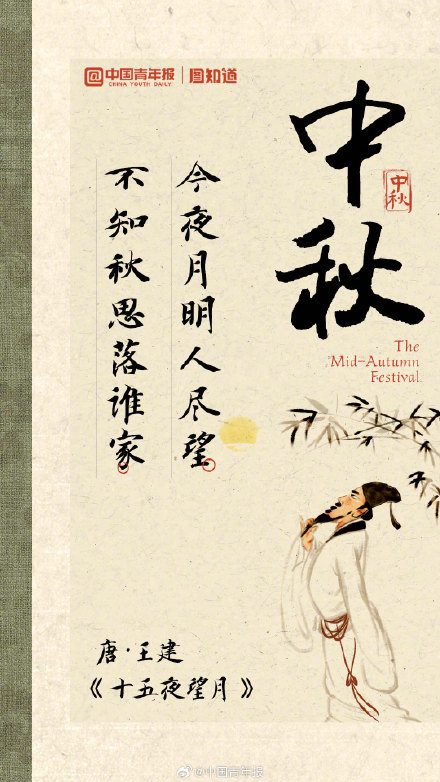 中国青年报
CHINA YOUTH DAILY
图知道
中秋
中秋
The
Mid-Autumn
Festival
今夜月明人尽望
不知秋思落谁家
唐·王建
《十五夜望月》
@中国青年报